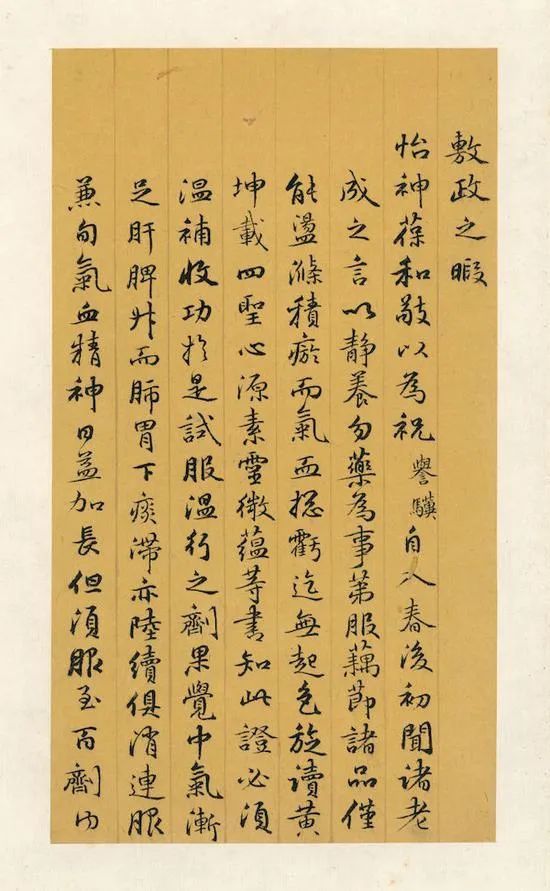 敷政之暇
怡神葆和敬以為祝譽驥自入春後初聞諸老
成之言以靜養勿藥為事第服藕節諸品僅
能盪滌積瘀而氣血總虧迄無起色旋讀黃
坤載四聖心源素靈微蘊等書知此證必須
溫補收功於是試服溫行之劑果覺中氣漸
足肝脾升而肺胃下痰滯亦陸續俱消連服
兼旬氣血精神日益加長但須服至百劑內